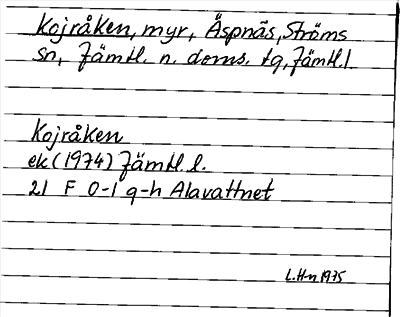 Kojråken, myr, Äspnäs, Ströms
sn, Jämtl. n. doms. tg, Jämtl.l.
Kojråken
ek (1974) Jämtl. l.
21 F 0-1 g-h Alavattnet
L.H-n 1975